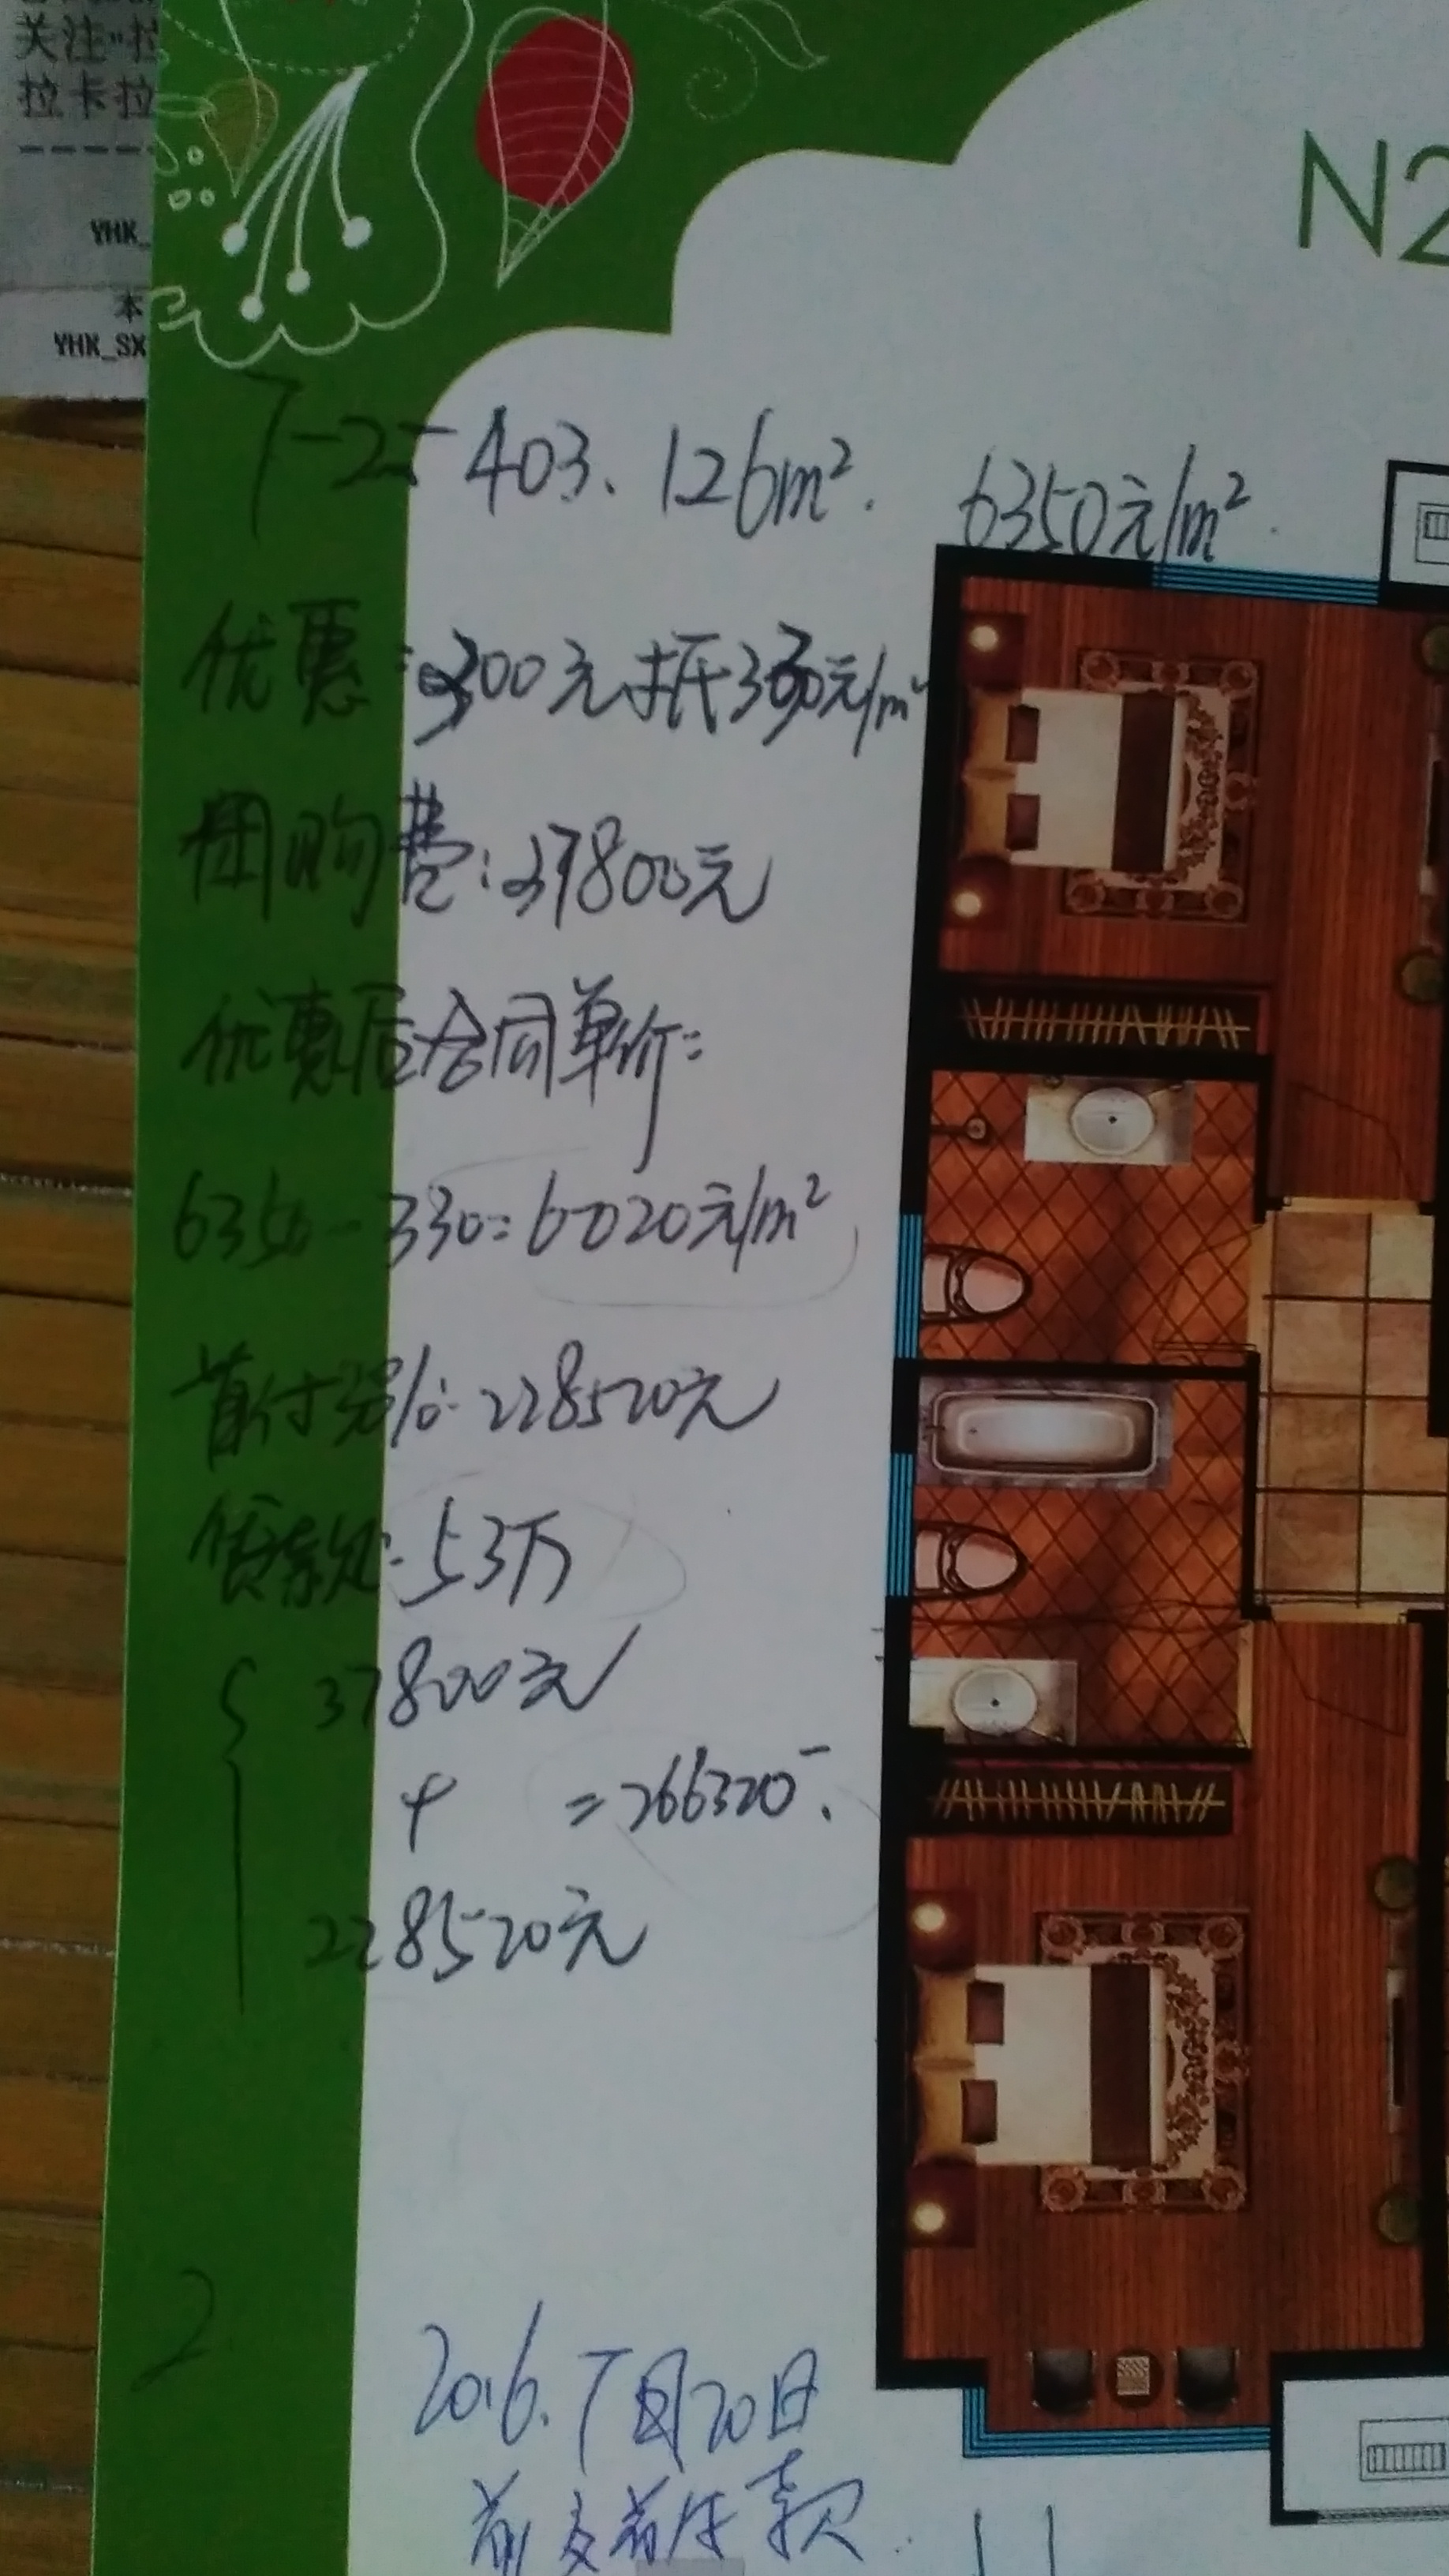 关注"拉
拉卡拉
YHK_
本
YHK_SX
N2
7-25 403. 126m². 6350元/m²
优惠:300元抵330元/m²
团购费:37800元
优惠后合同单价:
6350-330=6020元/m²
首付30%:228520元
贷款:53万
37800元
+ =266320
228520元
2
2016.7月20日
前交首付款.